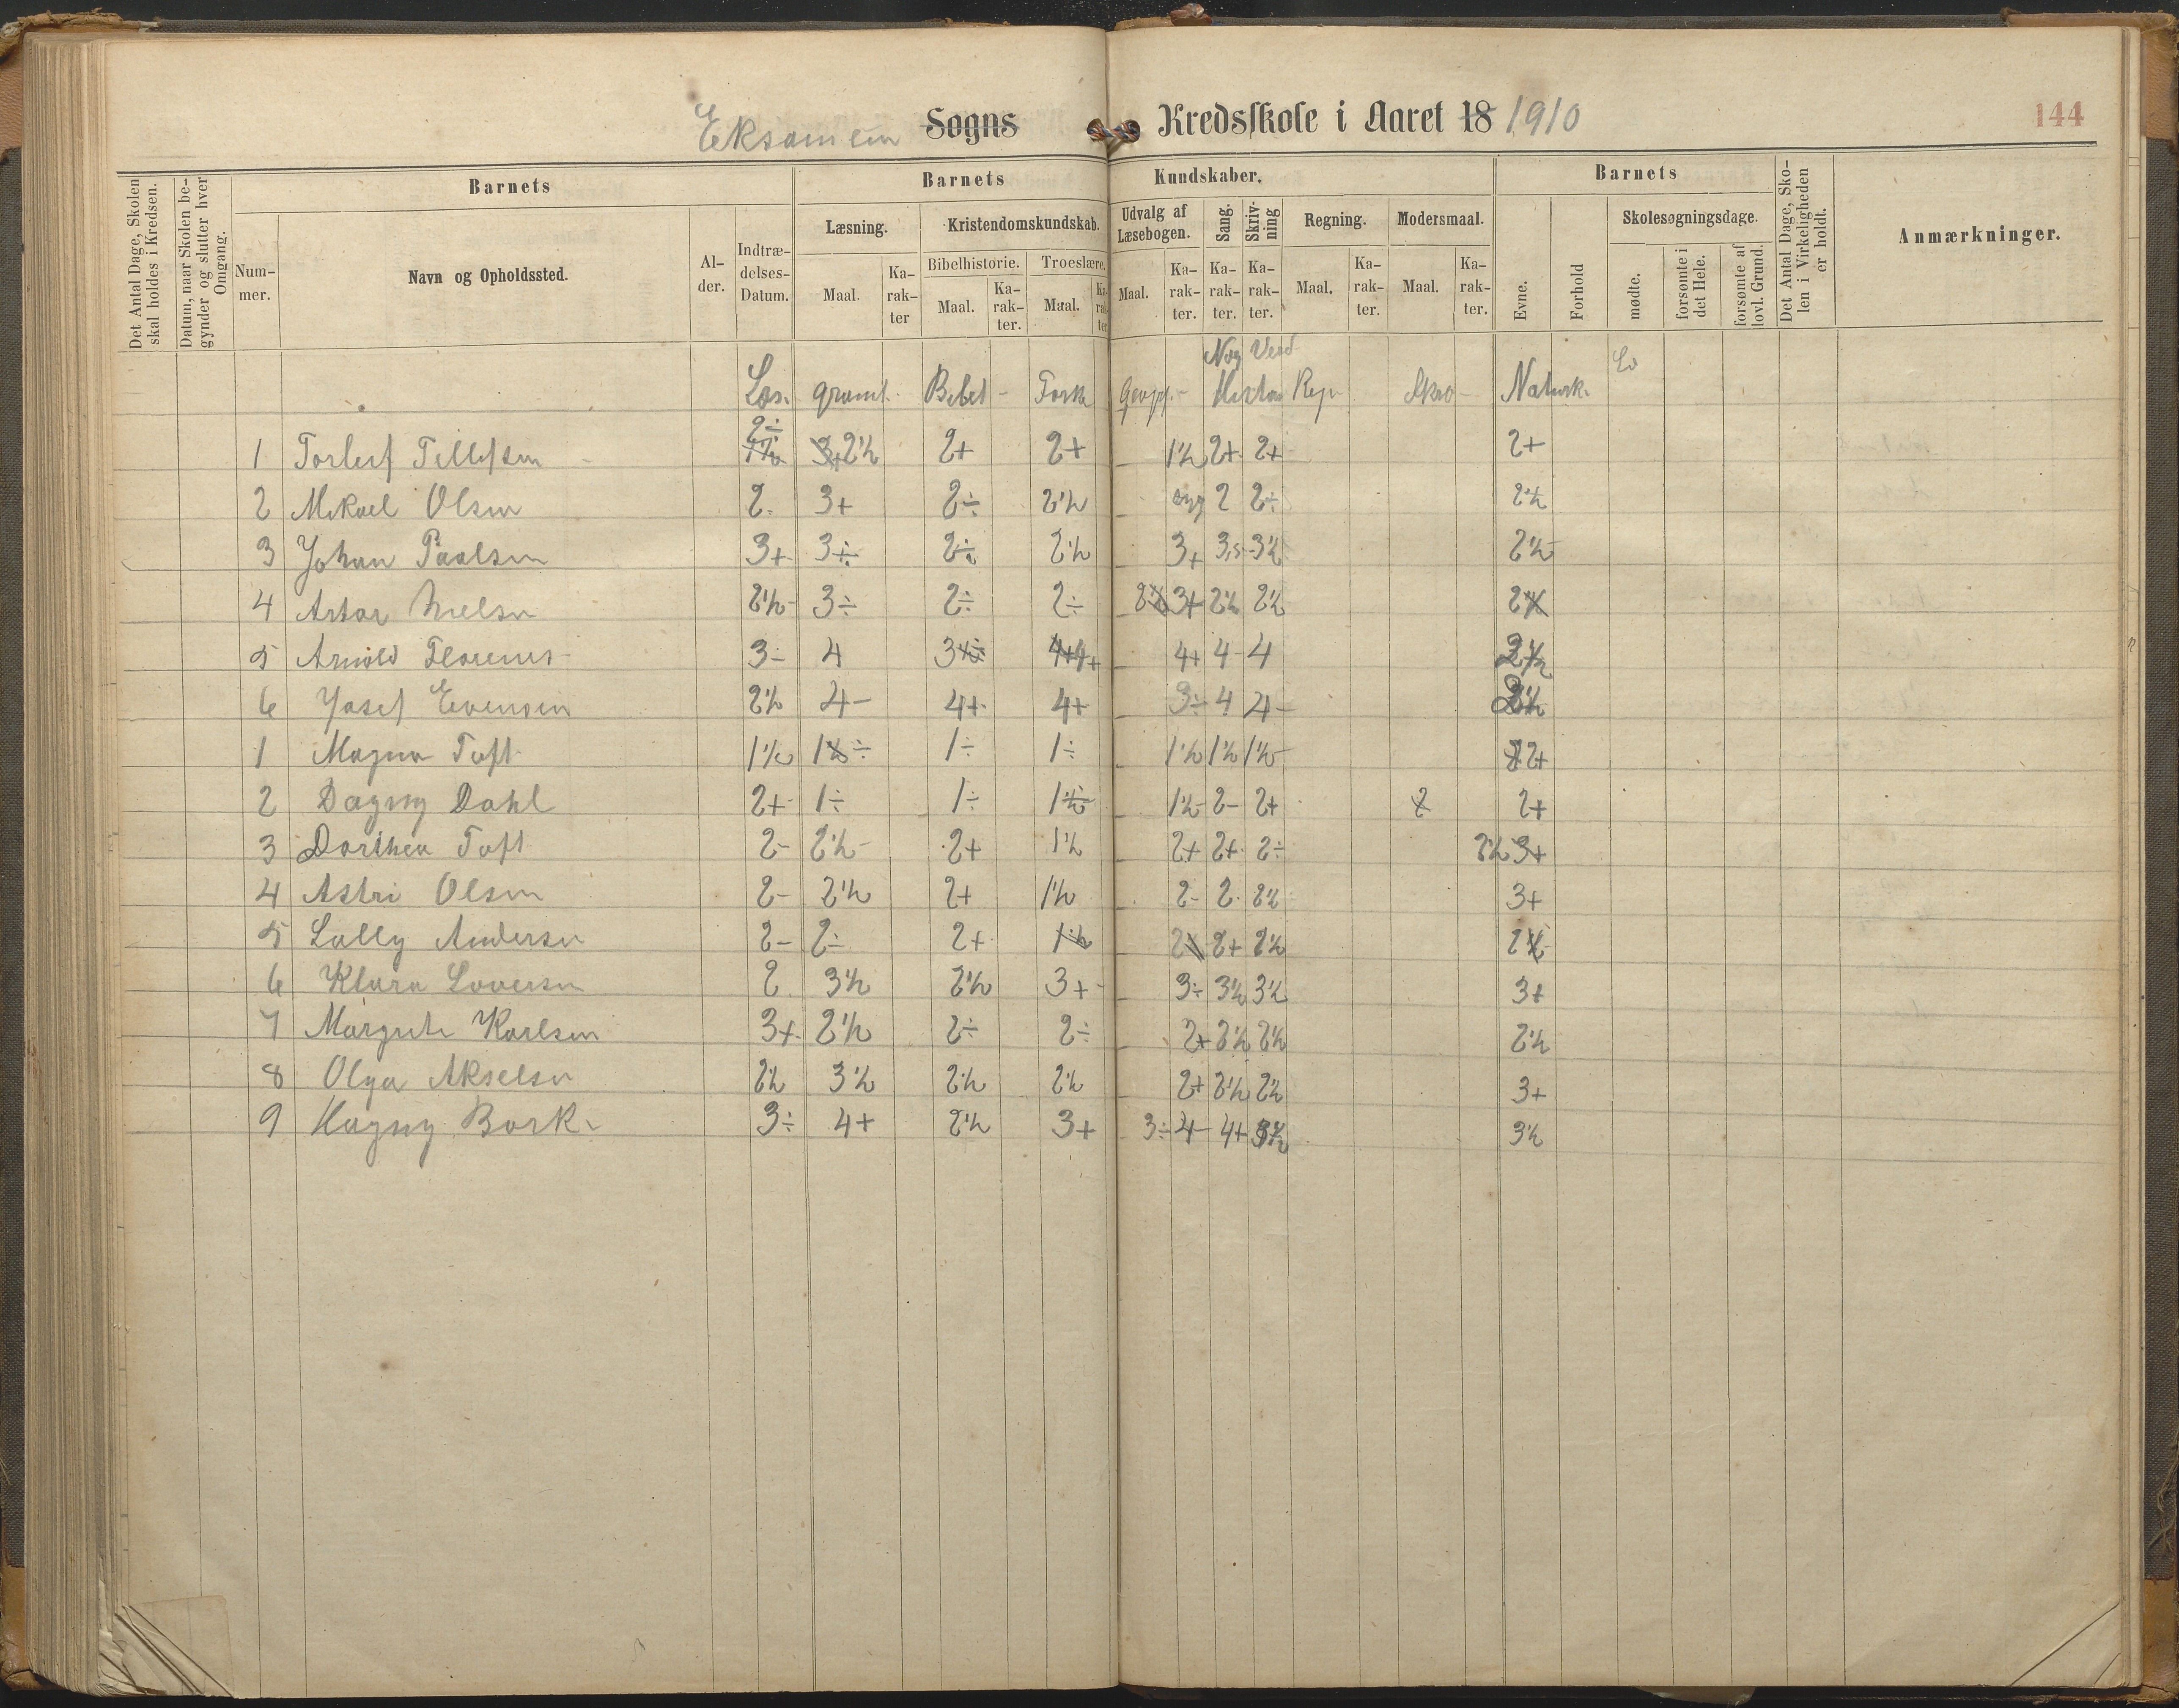 Eksamen Sogns Kredsskole i Aaret 18 1910 144
Det Antal Dage, Skolen skal holdes i Kredsen.
Datum, naar Skolen begynder og slutter hver Omgang.
Barnets
Num-
mer.
Navn og Opholdssted.
Al-
der.
Indtræ-
delses-
Datum.
Barnets Kundskaber.
Læsning.
Maal. Ka-
rak-
ter
Kristendomskundskab.
Bibelhistorie. Troeslære.
Maal. Ka-
rak-
ter. Maal.
Udvalg af
Læsebogen.
Maal. Ka-
rak-
ter.
Sang.
Ka-
rak-
ter.
Skriv-
ning
Ka-
rak-
ter.
Regning.
Maal. Ka-
rak-
ter.
Modersmaal.
Maal. Ka-
rak-
ter.
Barnets
Evne.
Forhold
Skolesøgningsdage.
mødte.
forsømte i
det Hele.
forsømte af
lovl. Grund.
Det Antal Dage, Sko-
len i Virkeligheden
er holdt.
Anmærkninger.
Læs. Bibel- Fork Naturk.
1 Torleif Tellefsen 2÷ 2½ 2+ 2+ 1½ 2+ 2+ 2+
2 Mikael Olsen 2 3+ 2÷ 2½ syg 2 2÷ 2½
3 Johan Paalsen 3+ 3÷ 2÷ 2½ 3+ 3½ 2½
4 Artor Nielsen 2½ 3÷ 2÷ 2÷ 3+ 2½ 2½
5 Arnold 3- 4 4+ 4+ 4- 4
6 Josef Evensen 2½ 4- 4+ 4+ 3÷ 4 4-
1 Magna Toft 1½ 1÷ 1÷ 1÷ 1½ 1½ 1½ 2+
2 Dagny Dahl 2+ 1÷ 1÷ 1½ 2- 2+ 2 2+
3 Dorthea Toft 2- 2½- 2+ 1½ 2+ 2+ 2÷ 2½ 3+
4 Astri Olsen 2- 2½ 2+ 1½ 2- 2 2½ 3+
5 Lally Andersen 2- 2÷ 2+ 1½ 2 2+ 2½
6 Klara 2 3½ 2½ 3+ 3÷ 3½ 3½ 3+
7 Margrete Karlsen 3+ 2½ 2÷ 2÷ 2+ 2½ 2½ 2½
8 Olga Akselsen 2½ 3½ 2½ 2½ 2+ 2½ 2½ 3+
9 Hagny Bork 3÷ 4+ 2½ 3+ 3÷ 4- 4+ 3½